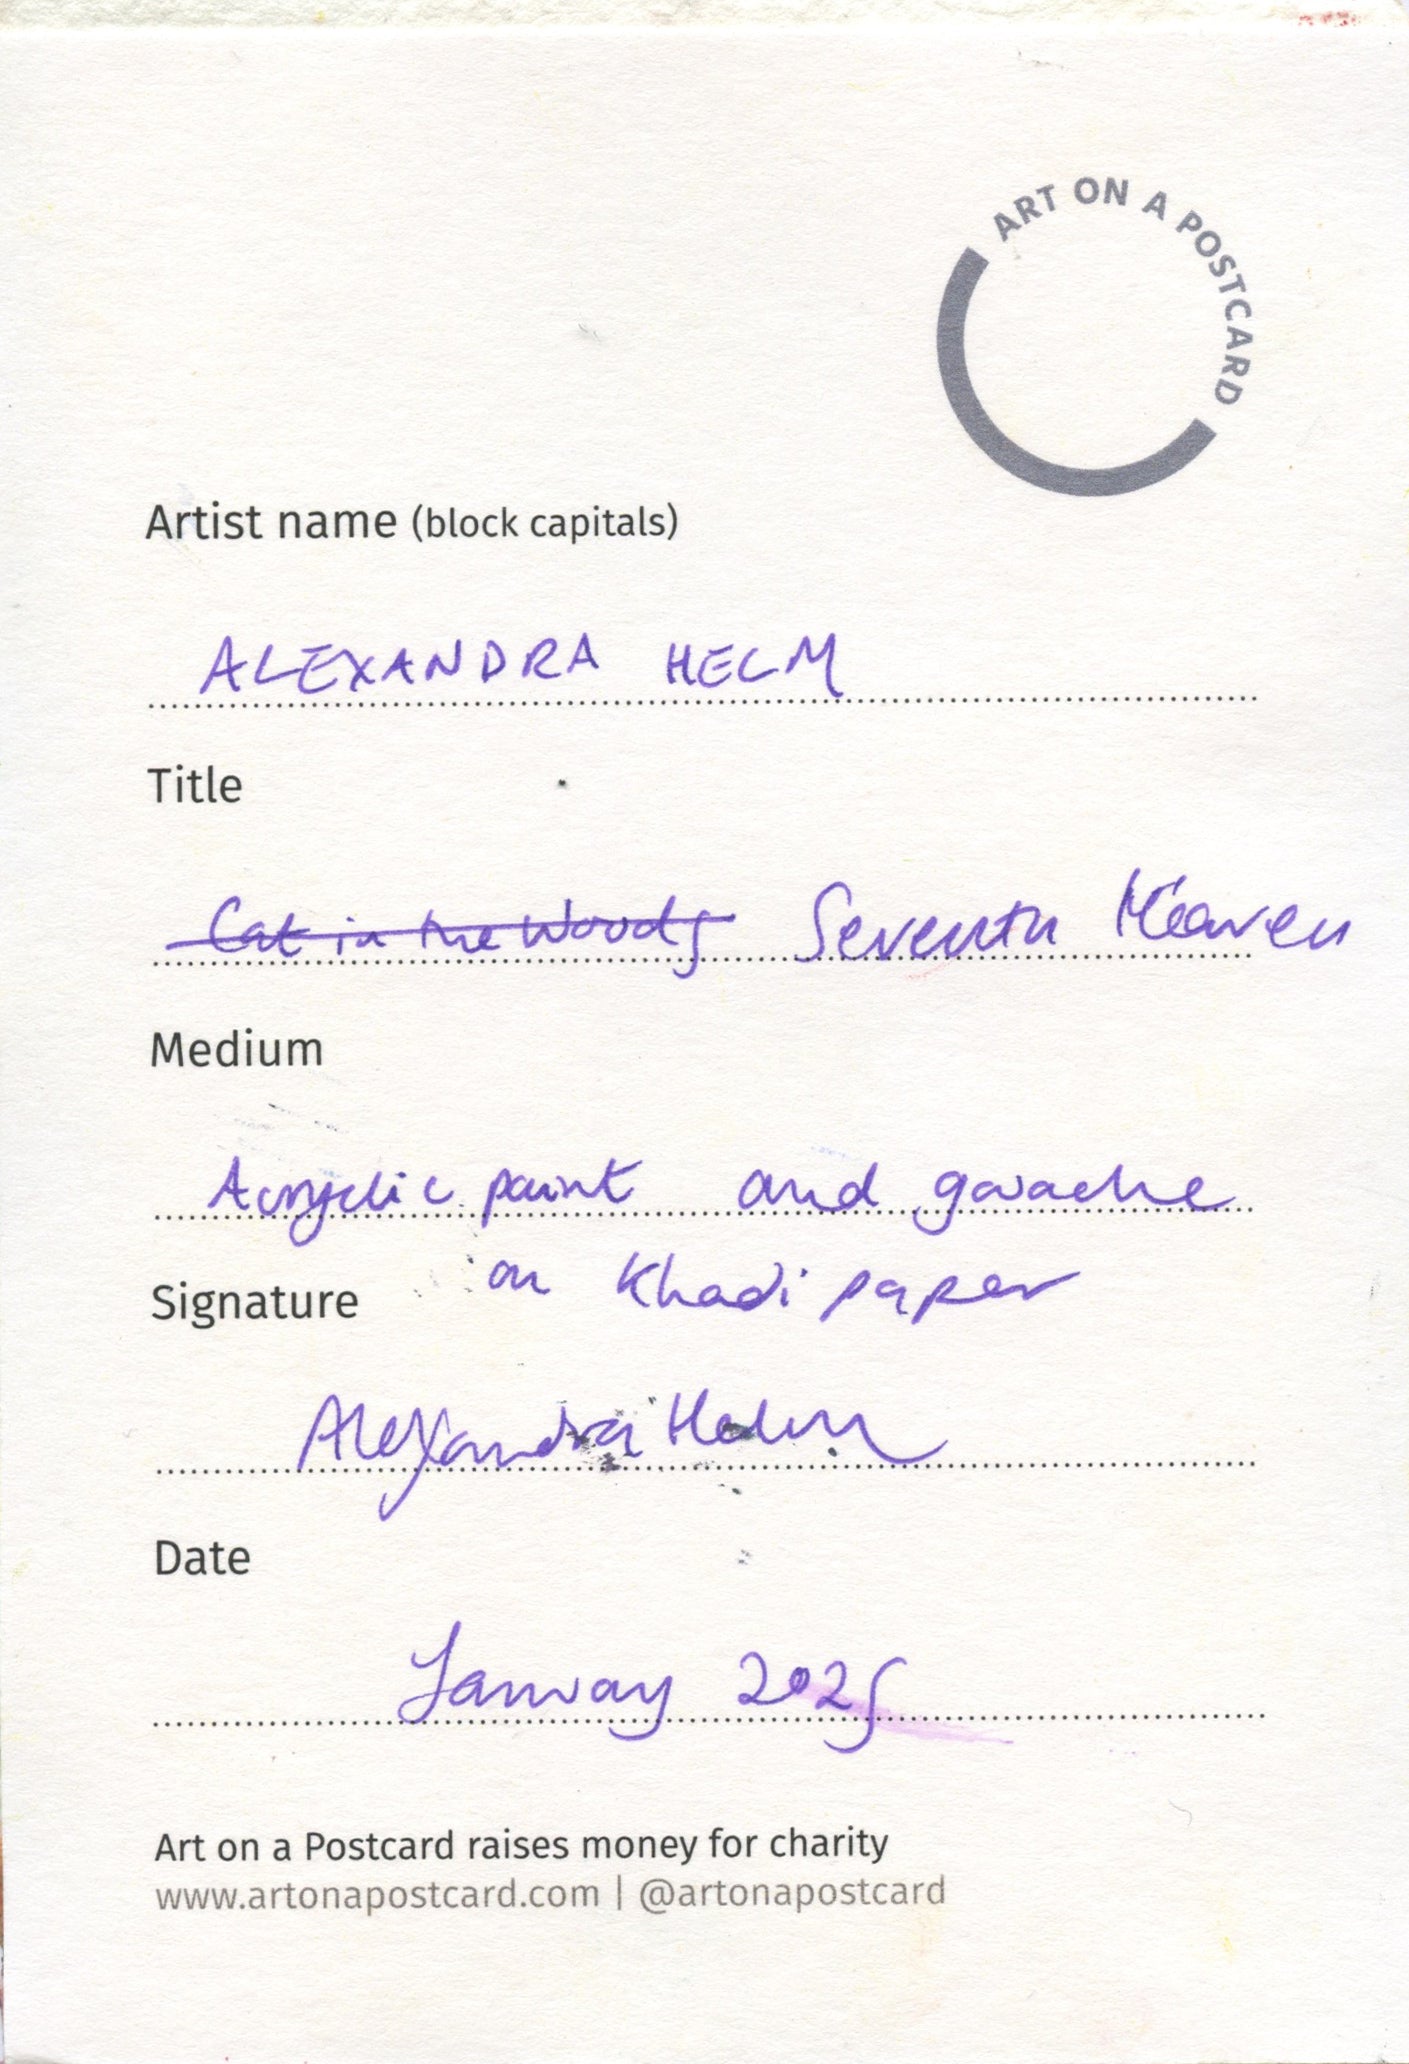 ART ON A POSTCARD
Artist name (block capitals)
ALEXANDRA HELM
Title
Cat in the Woods Seventh Heaven
Medium
Acryclic paint and gouache
on Khadi paper
Signature
Alexandra Helm
Date
January 2025
Art on a Postcard raises money for charity
www.artonapostcard.com | @artonapostcard